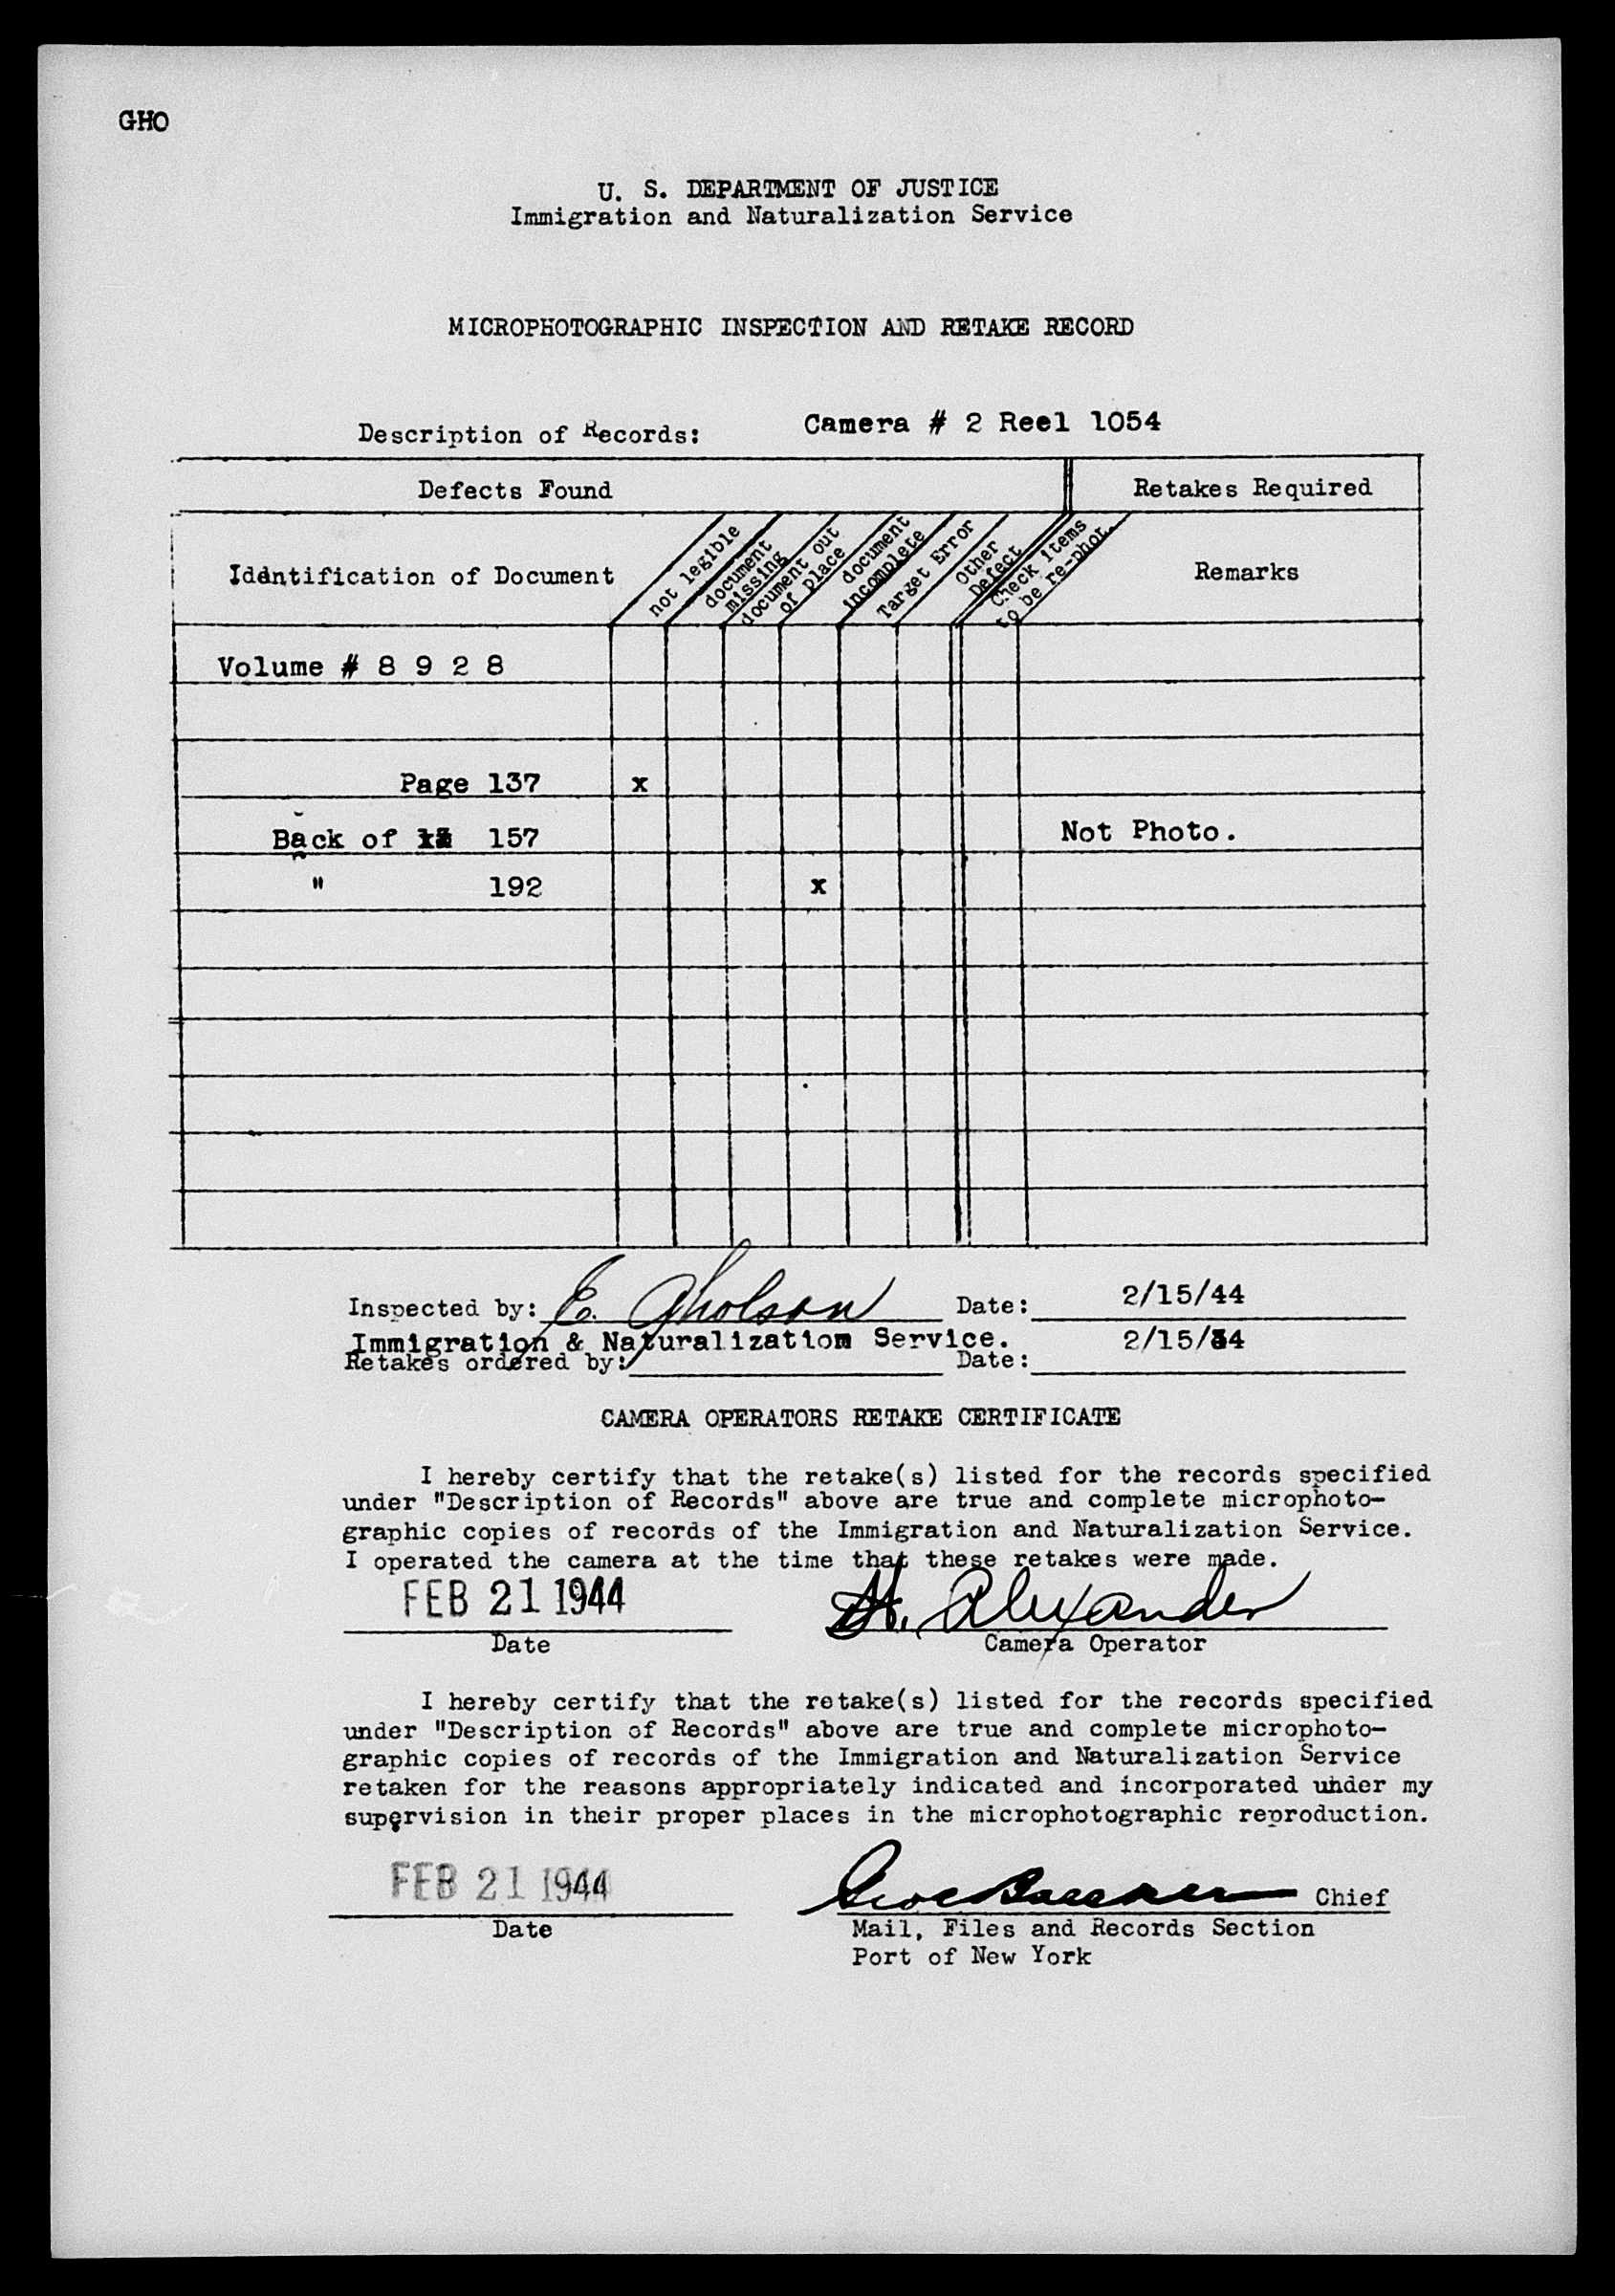 GHO
U. S. DEPARTMENT OF JUSTICE
Immigration and Naturalization Service
MICROPHOTOGRAPHIC INSPECTION AND RETAKE RECORD
Description of Records: Camera # 2 Reel 1054
Defects Found Retakes Required
Identification of Document not legible document missing document out of place document incomplete Target Error Other Defect Check items to be re-phot. Remarks
Volume # 8 9 2 8
Page 137 x
Back of 157 Not Photo.
" 192 x
Inspected by: E. Gholson Date: 2/15/44
Immigration & Naturalization Service. 2/15/44
Retakes ordered by: Date:
CAMERA OPERATORS RETAKE CERTIFICATE
I hereby certify that the retake(s) listed for the records specified
under "Description of Records" above are true and complete microphoto-
graphic copies of records of the Immigration and Naturalization Service.
I operated the camera at the time that these retakes were made.
FEB 21 1944 H. Alexander
Date Camera Operator
I hereby certify that the retake(s) listed for the records specified
under "Description of Records" above are true and complete microphoto-
graphic copies of records of the Immigration and Naturalization Service
retaken for the reasons appropriately indicated and incorporated under my
supervision in their proper places in the microphotographic reproduction.
FEB 21 1944 Chief
Date Mail, Files and Records Section
Port of New York